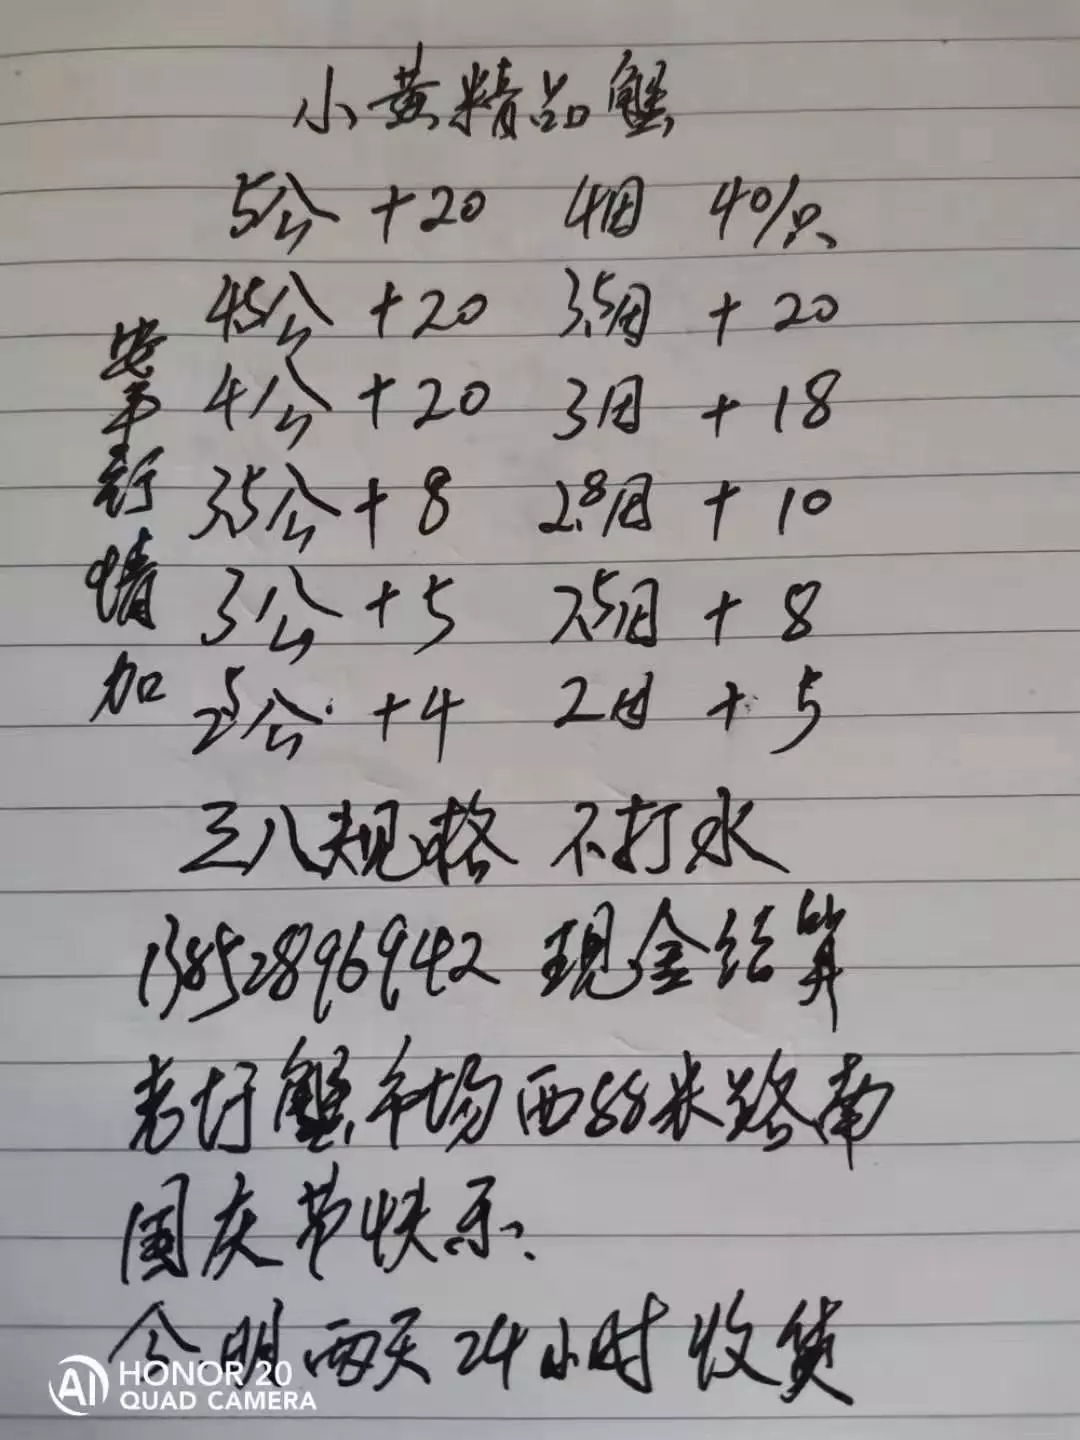 小黄精品蟹
5公 +20 4母 40/只
4.5公 +20 3.5母 +20
4公 +20 3母 +18
3.5公 +8 2.8母 +10
3公 +5 2.5母 +8
2.5公 +4 2母 +5
行情加
三八规格 不打水
13852896942 现金结算
老圩蟹市场西88米路南
国庆节快乐
今明两天24小时收货
HONOR 20
QUAD CAMERA
AI